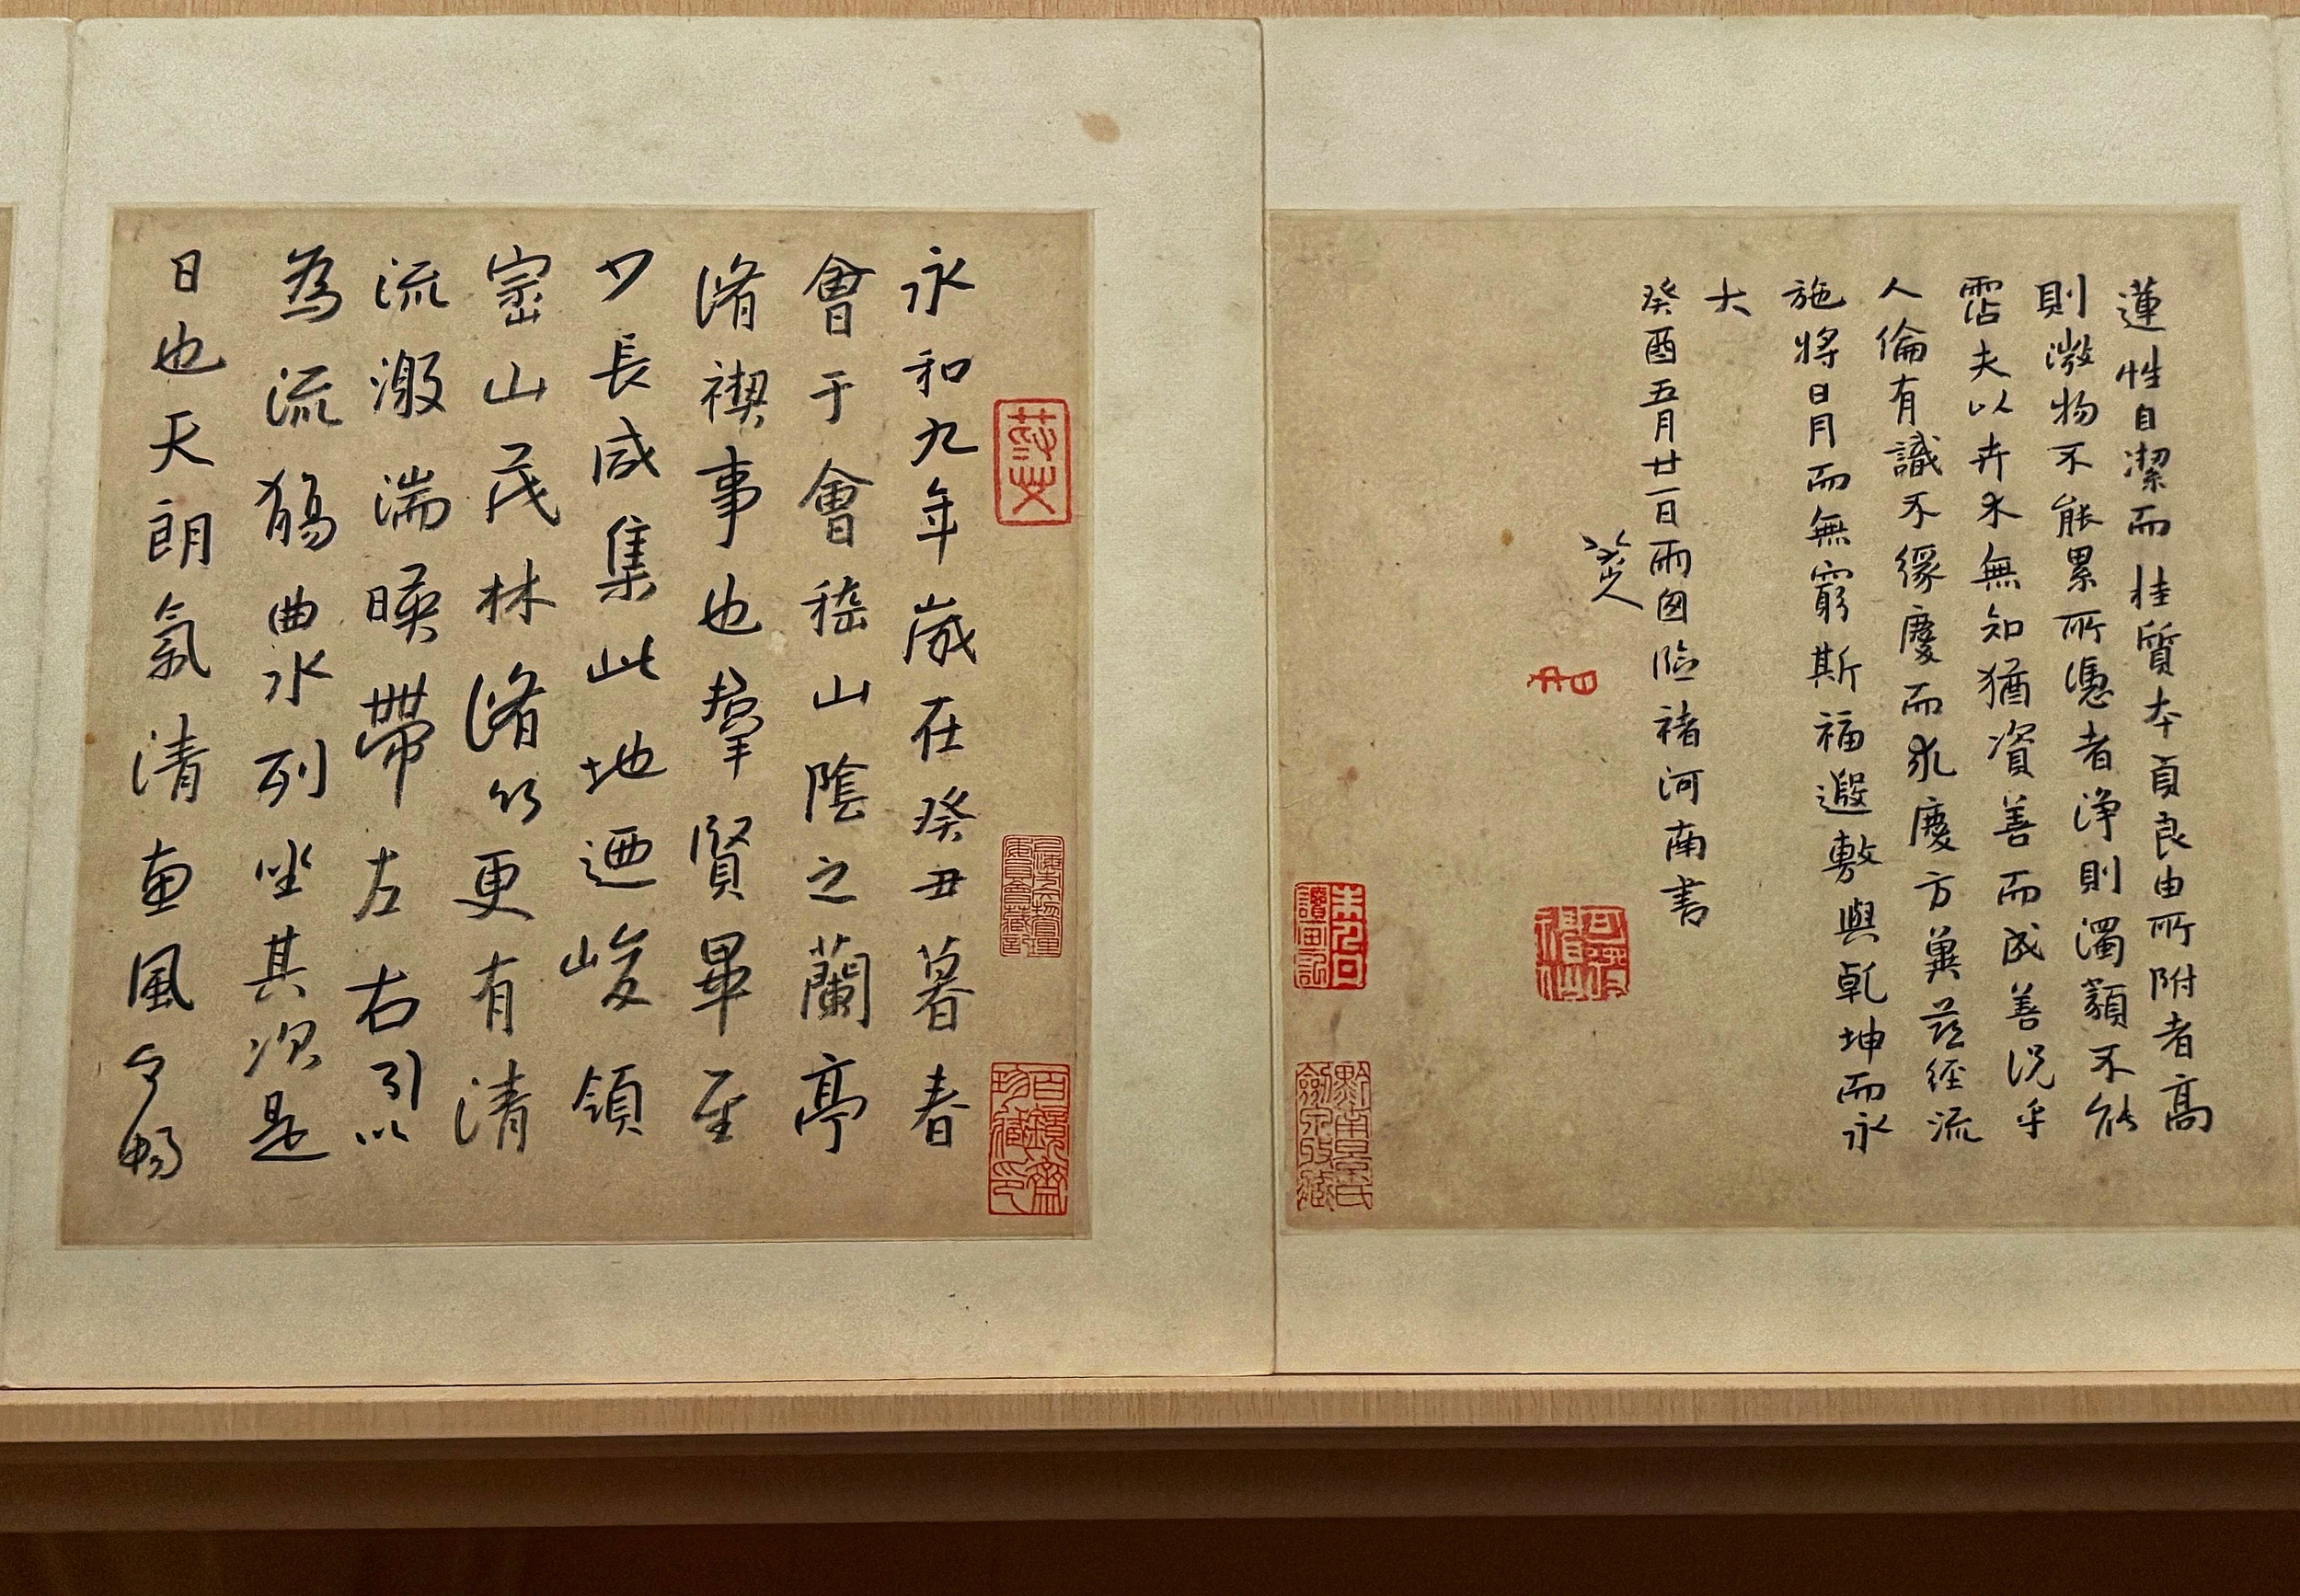 蓮性自潔而桂質本貞良由所附者高
則微物不能累所憑者淨則濁類不能
霑夫以卉木無知猶資善而成善況乎
人倫有識不緣慶而求慶方冀茲經流
施將日月而無窮斯福遐敷與乾坤而永
大
癸酉五月廿一日雨囱臨褚河南書
八大山人
可得神仙
永和九年歲在癸丑暮春
會于會稽山陰之蘭亭
脩禊事也羣賢畢至
少長咸集此地迺峻領
崈山茂林脩竹更有清
流激湍暎帶左右引以
為流觴曲水列坐其次是
日也天朗氣清惠風和暢